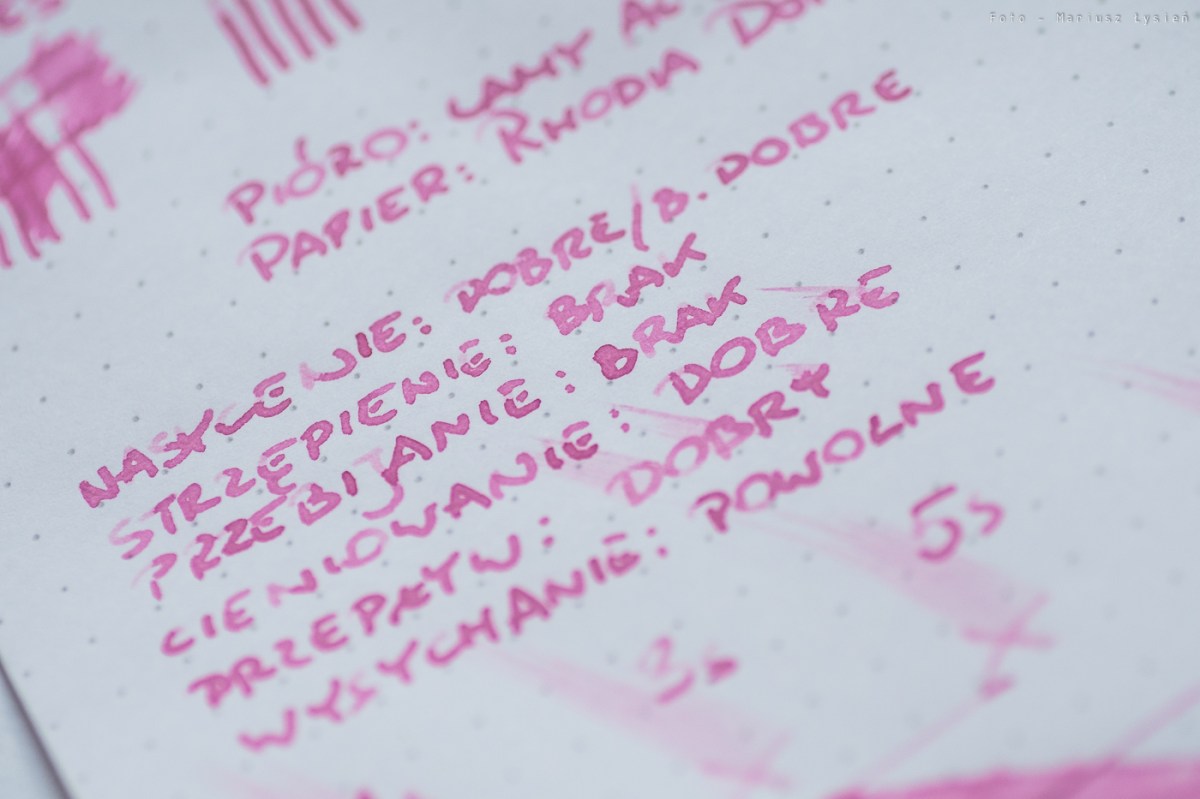 Foto - Mariusz Łysień
PIÓRO: LAMY AL
PAPIER: RHODIA DOT
NASYCENIE: DOBRE/B.DOBRE
STRZĘPIENIE: BRAK
PRZEBIJANIE: BRAK
CIENIOWANIE: DOBRE
PRZEPŁYW: DOBRY
WYSYCHANIE: POWOLNE
5s
3s